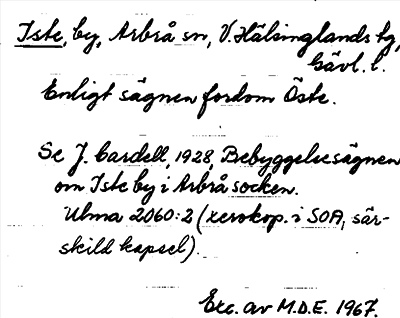 Iste, by, Arbrå sn, V. Hälsinglands tg,
Gävl. l.
Enligt sägnen fordom Öste.
Se J. Cardell, 1928, Bebyggelsesägnen
om Iste by i Arbrå socken.
Ulma 2060:2 (xerokop. i SOA, sär-
skild kapsel).
Exc. av M.D.E. 1967.